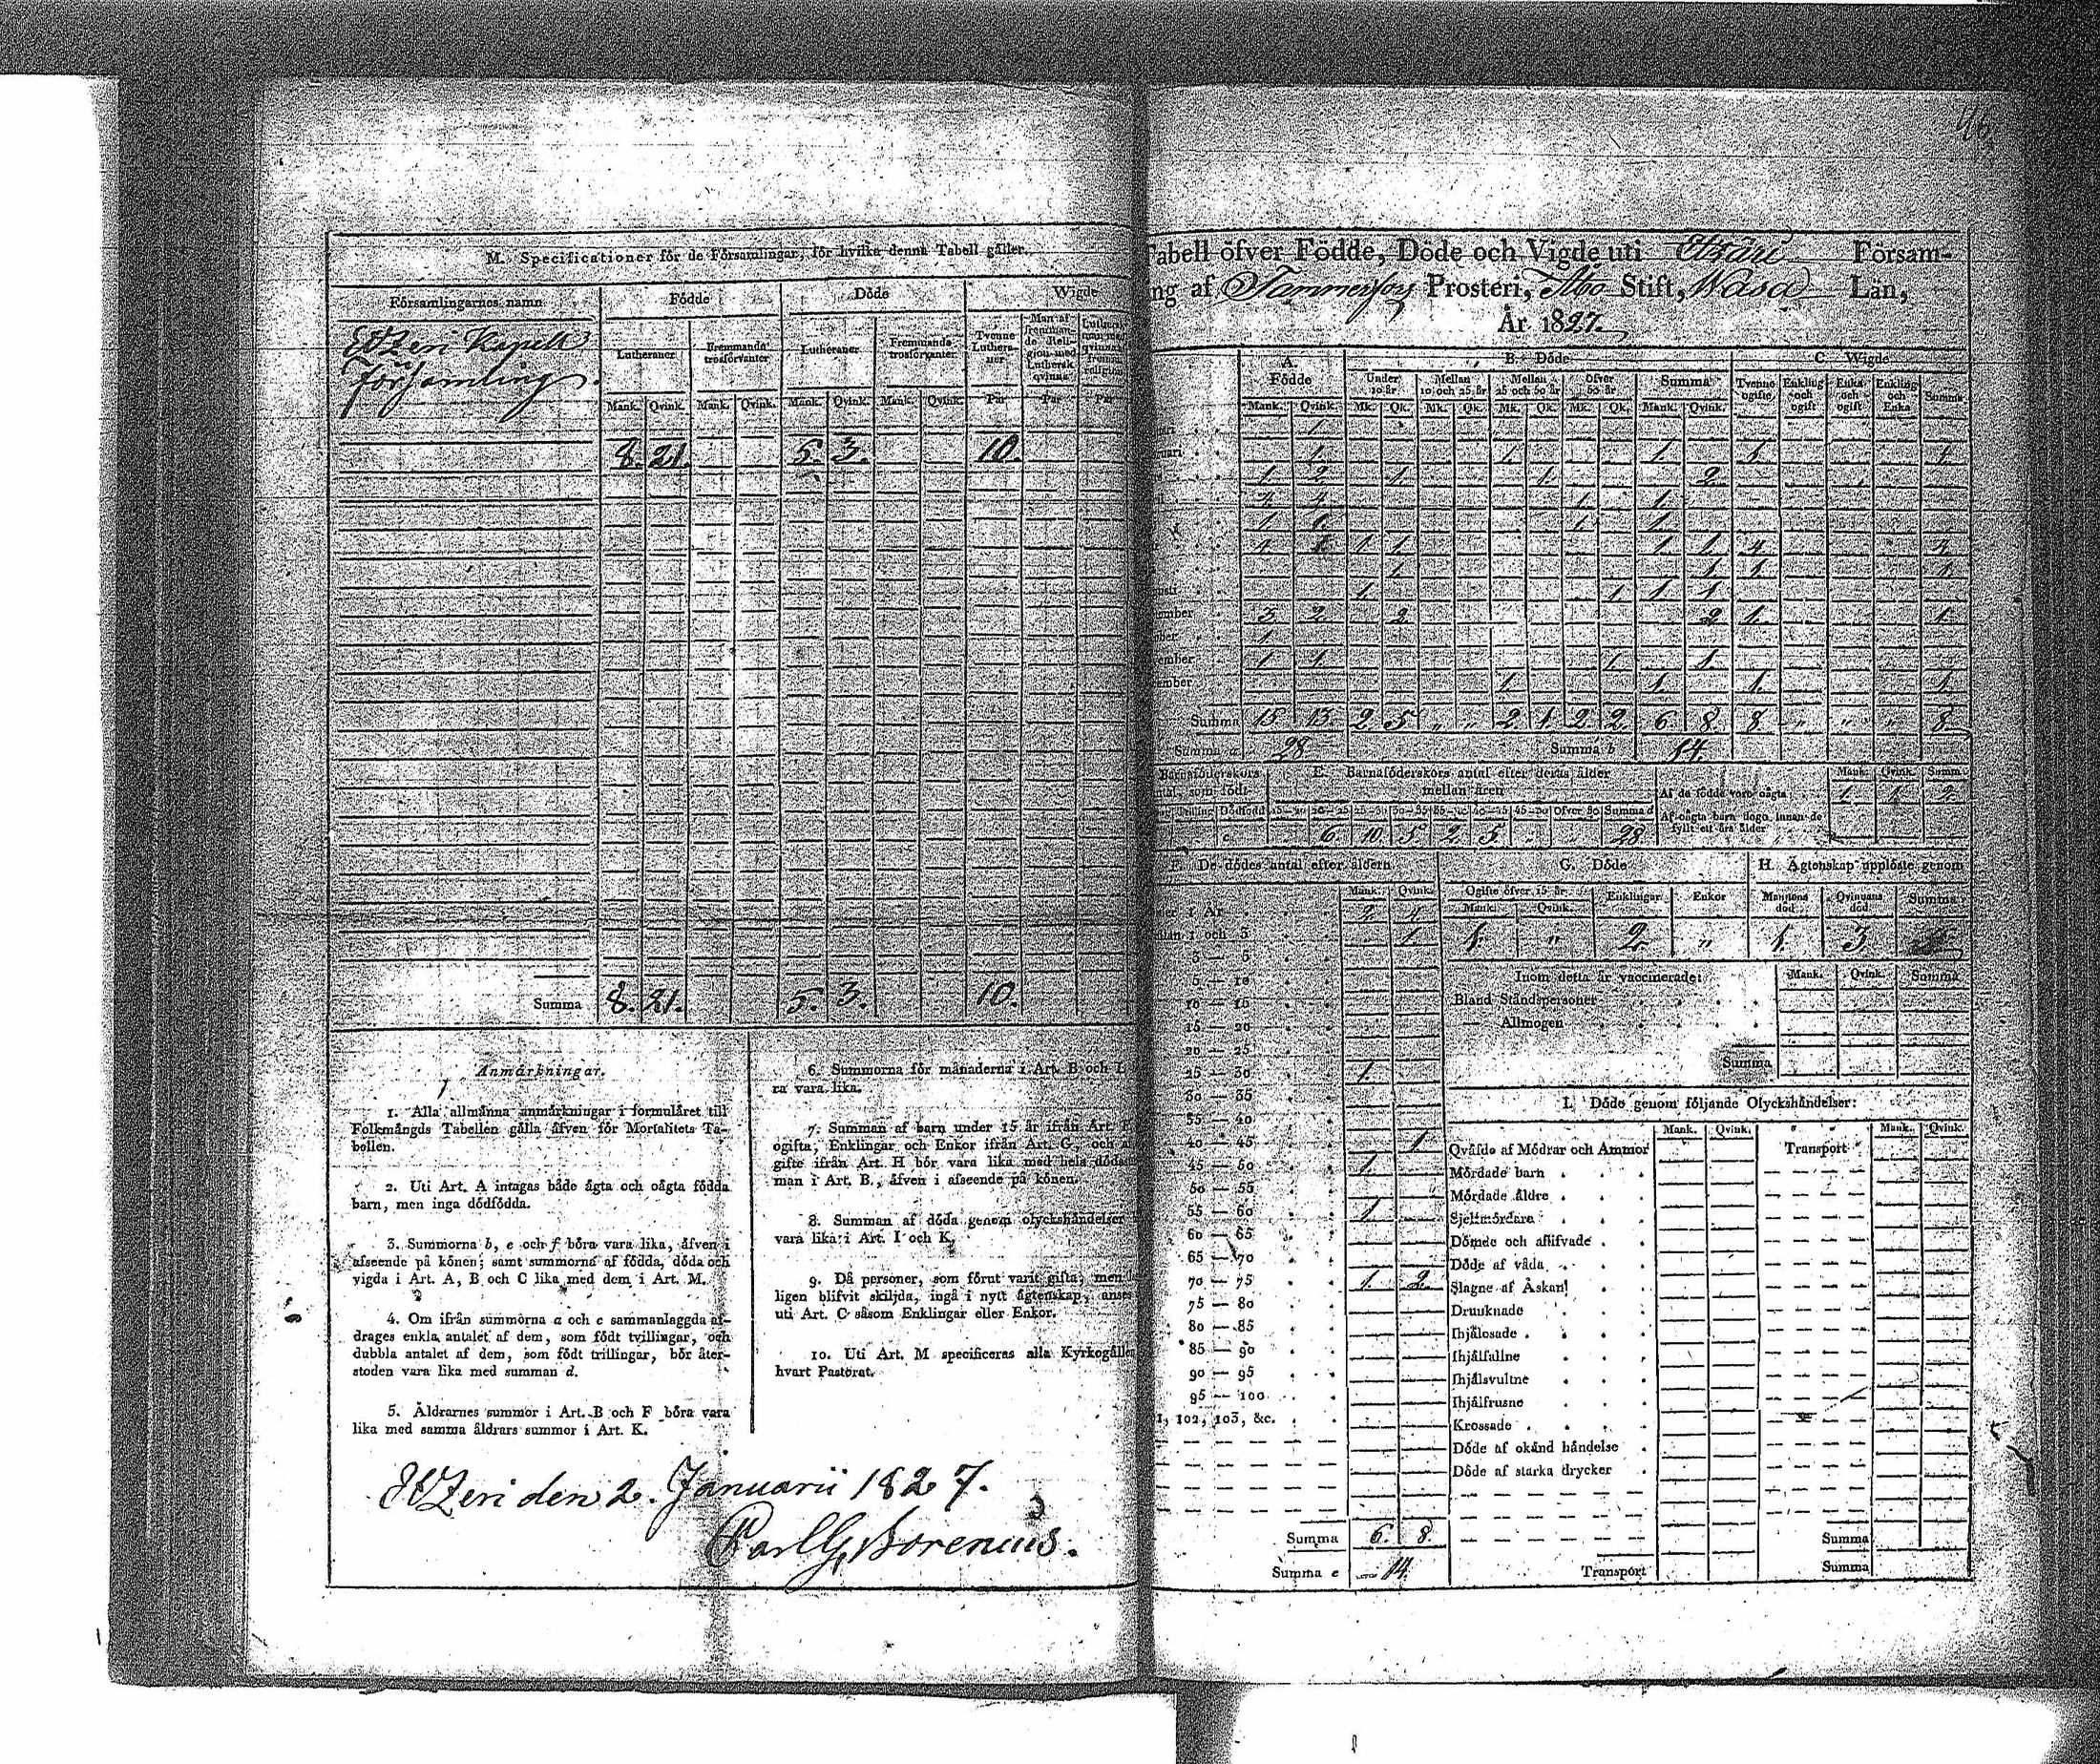 M. Specificationer för de Församlingar, för hvilka denna Tabell gäller.
Församlingarnes namn Födde Döde Wigde
Lutheraner Fremmande trosförvanter Lutheraner Fremmande trosförvanter Tvenne Lutheraner Man af främmande Religion med Luthersk qvinna
Mank. Qvink. Mank. Qvink. Mank. Qvink. Mank. Qvink. Par Par Par
Etzeri Kapell
Församling.
8. 21. 5. 3. 10.
Summa 8. 21. 5. 3. 10.
Anmärkningar.
1. Alla allmänna anmärkningar i formuläret till
Folkmängds Tabellen gälla äfven för Mortalitets Ta-
bellen.
2. Uti Art. A intagas både ägta och oägta födda
barn, men inga dödfödda.
3. Summorna b, e och f böra vara lika, äfven i
afseende på könen; samt summorna af födda, döda och
vigda i Art. A, B och C lika med dem i Art. M.
4. Om ifrån summorna a och c sammanlaggda af-
drages enkla antalet af dem, som födt tvillingar, och
dubbla antalet af dem, som födt trillingar, bör åter-
stoden vara lika med summan d.
5. Åldrarnes summor i Art. B och F böra vara
lika med samma åldrars summor i Art. K.
6. Summorna för månaderna i Art. B och L
ra vara lika.
7. Summan af barn under 15 år ifrån Art. F,
ogifta, Enklingar och Enkor ifrån Art. G, och
gifte ifrån Art. H bör vara lika med hela döda
man i Art. B., äfven i afseende på könen.
8. Summan af döda genom olyckshändelser
vara lika i Art. I och K.
9. Då personer, som förut varit gifta, men
ligen blifvit skiljda, ingå i nytt ägtenskap, anses
uti Art. C såsom Enklingar eller Enkor.
10. Uti Art. M specificeras alla Kyrkogälle
hvart Pastorat.
Etzeri den 2. Januarii 1827.
Carl G. Borenius.
Tabell öfver Födde, Döde och Vigde uti Etzäri Församling
af Tammerfors Prosteri, Åbo Stift, Wasa Län,
År 1827.
A. Födde B. Döde C. Wigde
Under 10 år Mellan 10 och 25 år Mellan 25 och 50 år Öfver 50 år Summa Tvenne ogifte Enkling och ogift Enka och ogift Enkling och Enka Summa
Mank. Qvink. Mk. Qk. Mk. Qk. Mk. Qk. Mk. Qk. Mank. Qvink.
1
1. 1. 1. 1. 1
1. 2. 1. 1. 2.
1. 1.
1. 1.
1 1. 1. 1. 4. 4.
1. 1. 1. 1
1. 1. 1. 1.
3. 2. 2. 2. 1. 1.
1.
1. 1. 1. 1.
1. 1. 1. 1.
Summa 15 13 2. 5 " " 2 1 2 2 6 8. 8 " " " 8
Summa a 28 Summa b 14.
E. Barnaföderskors antal efter deras ålder
mellan åren
Mank. Qvink. Summ.
Af de födde voro oägta 1. 1. 2.
Af oägta barn dogo innan de
fyllt ett års ålder
Trilling Dödfödd 20—25 25—30 30—35 35—40 40—45 45—50 Öfver 50 Summa d
6 10 5. 2. 5. 28.
F. De dödes antal efter åldern G. Döde H. Ägtenskap upplöste genom
Mank. Qvink. Ogifte öfver 15 år Enklingar Enkor Mannens död Qvinnans död Summa
Mank. Qvink.
1 År 2 4
1 och 3 1 1. " 2. " 1. 3
3 — 5
5 — 10
10 — 15
15 — 20
20 — 25
25 — 30 1.
30 — 35
35 — 40
40 — 45 1
45 — 50 1.
50 — 55
55 — 60 1
60 — 65
65 — 70
70 — 75 1. 2
75 — 80
80 — 85
85 — 90
90 — 95
95 — 100
102, 103, &c.
Summa 6. 8.
Summa e 14.
Inom detta år vaccinerade: Mank. Qvink. Summa
Bland Ståndspersoner
— Allmogen
Summa
I. Döde genom följande Olyckshändelser:
Mank. Qvink. Mank. Qvink.
Qväfde af Mödrar och Ammor Transport
Mördade barn
Mördade äldre
Sjelfmördare
Dömde och aflifvade
Döde af våda
Slagne af Åskan
Drunknade
Ihjälosade
Ihjälfallne
Ihjälsvultne
Ihjälfrusne
Krossade
Döde af okänd händelse
Döde af starka drycker
Summa
Transport Summa